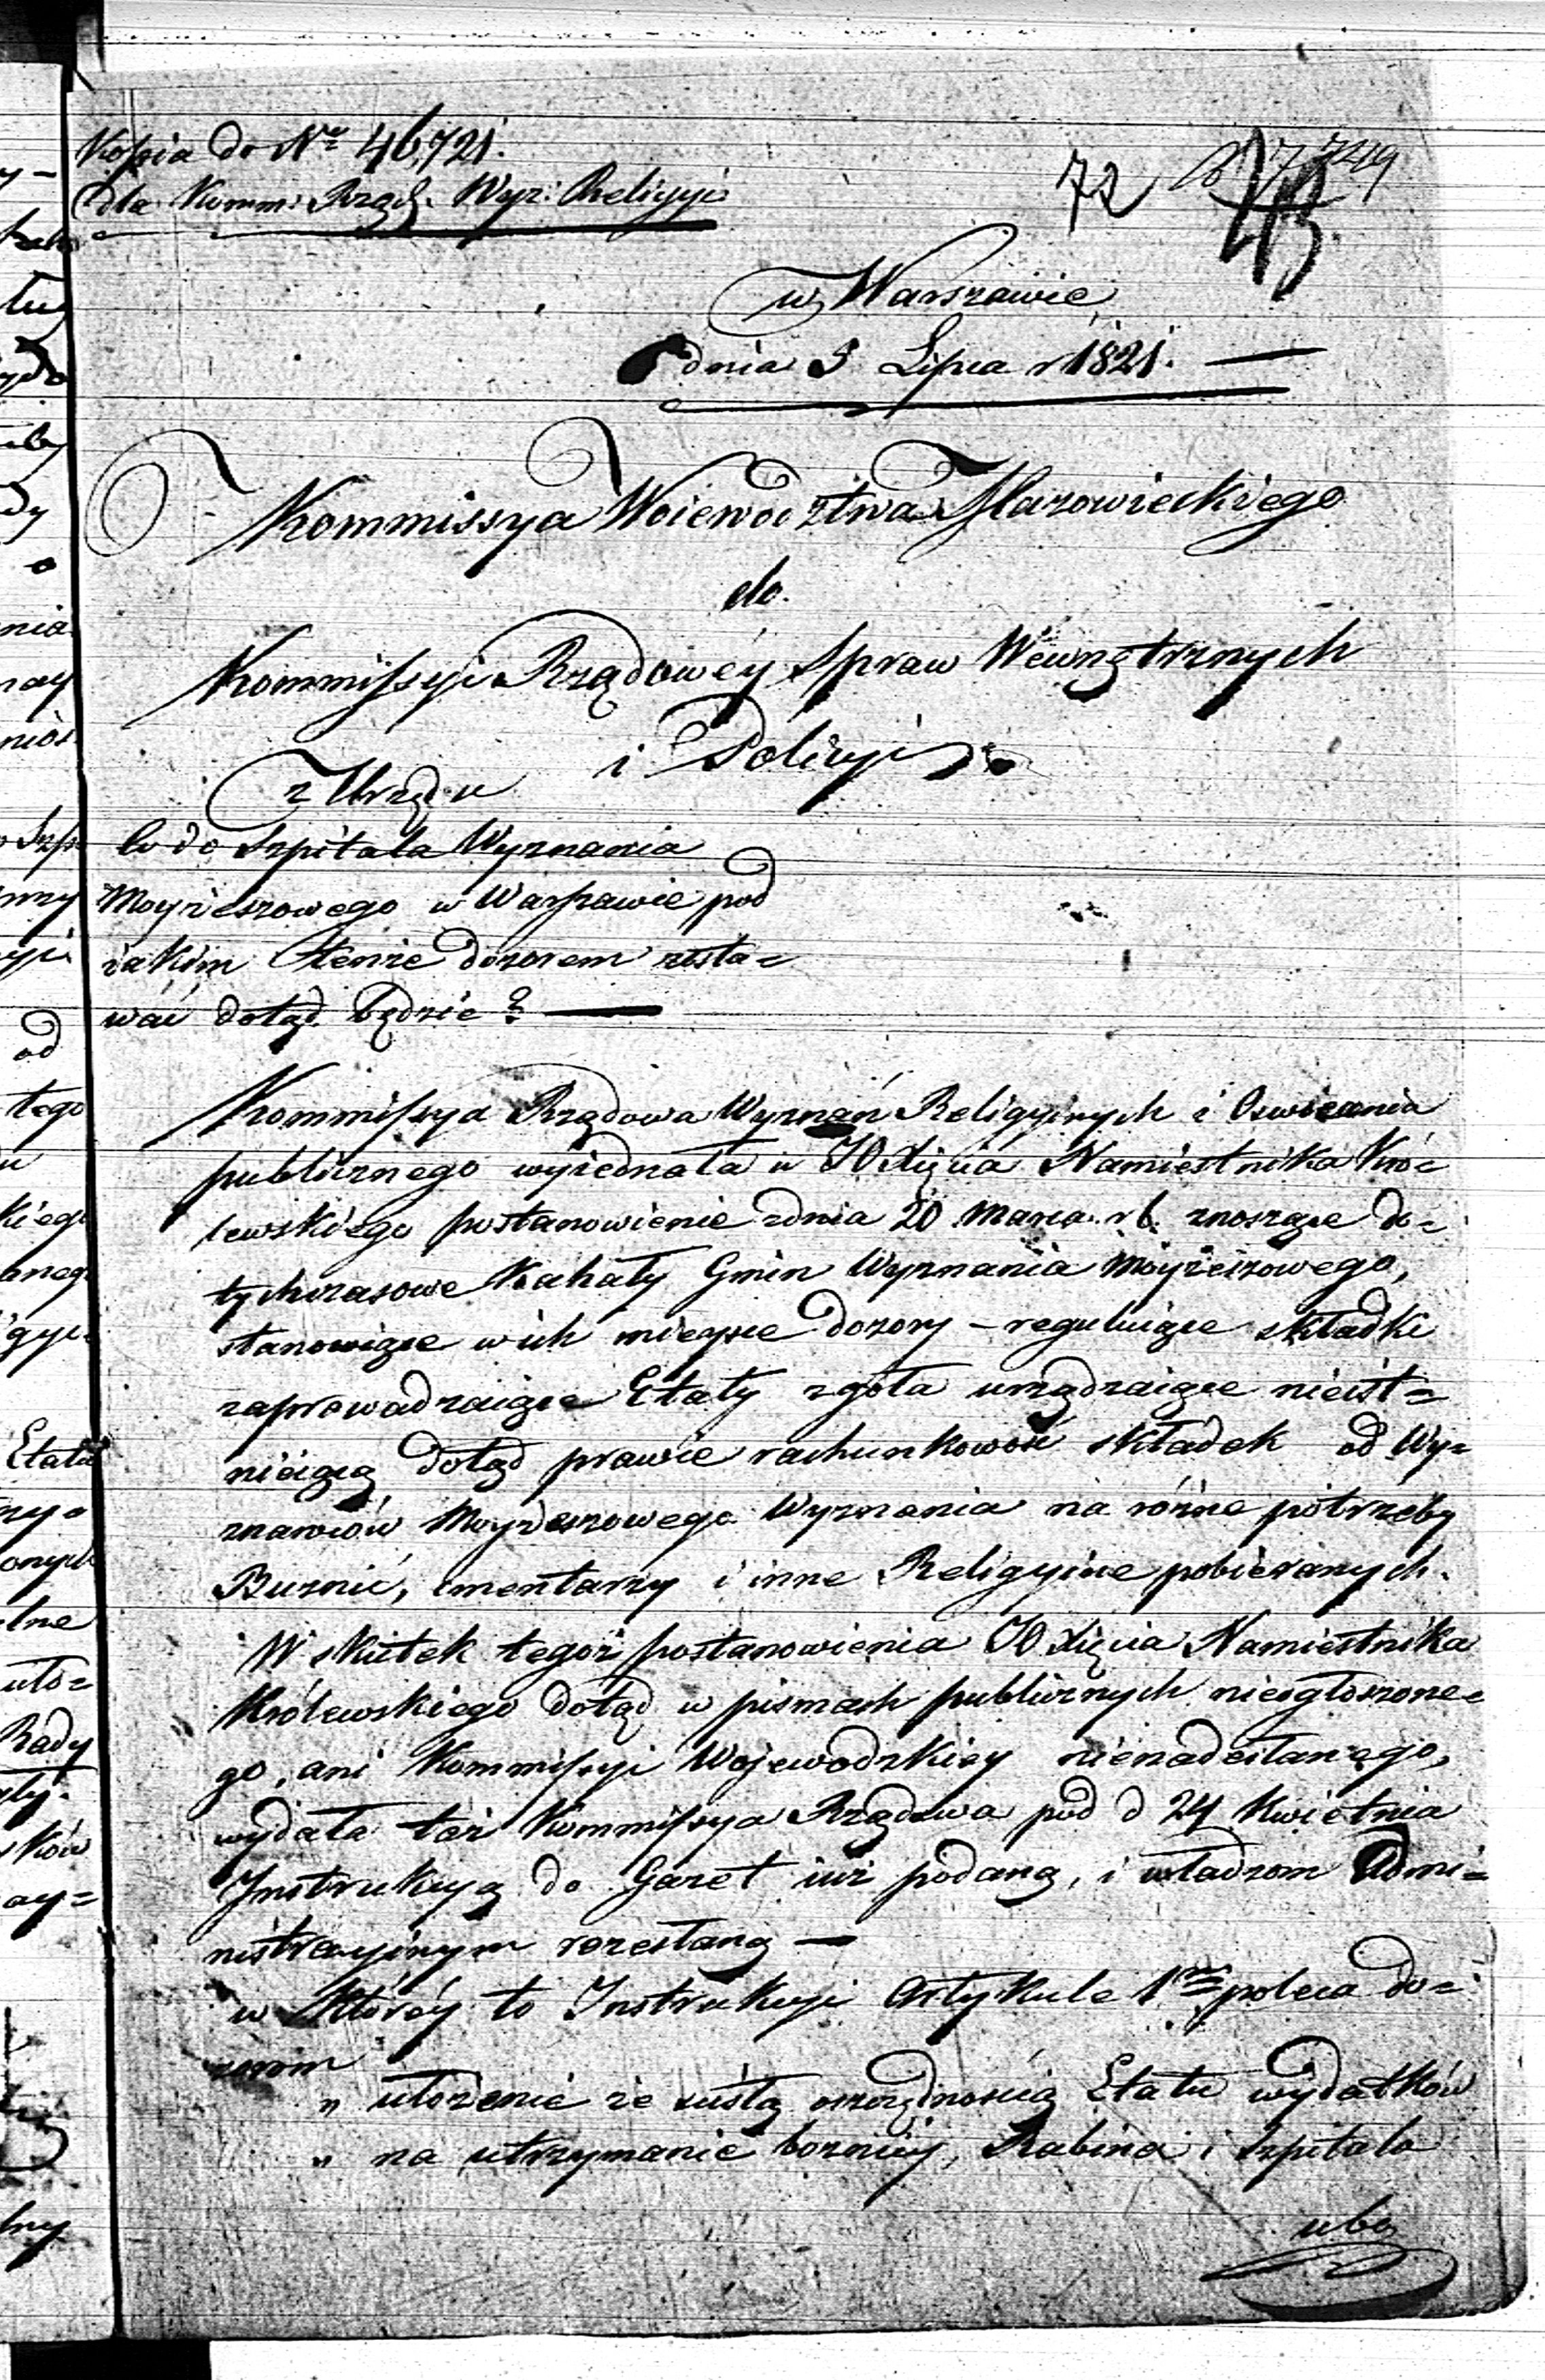 Kopia do Nro 46,721.
dla Komm: Rząd. Wyz: Religyi
72
7249
43.
w Warszawie
dnia 3 Lipca r 1821. —
Kommissya Woiewodztwa Mazowieckiego
do
Kommissyi Rządowéy Spraw Wewnętrznych
i Policyi
z Urzędu
Co do Szpitala Wyznania
Moyżeszowego w Warszawie pod
iakim tenże dozorem zosta=
wać dotąd będzie? —
Kommissya Rządowa Wyznań Religyinych i Oswiecenia
publicznego wyiednała u JO Xięcia Namiestnika Kró=
lewskiego postanowienie zdnia 20 Marca r b. znoszące do=
tychczasowe Kahały Gmin Wyznania Moyżeszowego,
stanowiące w ich mieysce dozory – reguluiące składki
zaprowadzaiące Etaty zgoła urządzaiące nieist=
nieiącą dotąd prawie rachunkowość składek od Wy=
znawców Moyżeszowego Wyznania na różne potrzeby
Buznic, cmentarzy i inne Religyine pobieranych.
W skutek tegoż postanowienia JO Xięcia Namiestnika
Królewskiego dotąd w pismach publicznych nieogłoszone=
go, ani Kommissyi Wojewodzkiey nienadesłanego,
wydała taż Kommissya Rządowa pod d 24 Kwietnia
Instrukcyą do Gazet iuż podaną, i władzom Admi=
nistracyinym rozesłaną —
w któréy to Instrukcyi Artykule 1m poleca do=
zorom
„ ułożenie ze scisłą oszczędnością Etatu wydatków
„ na utrzymanie boznicy, Rabina i Szpitala
ubo